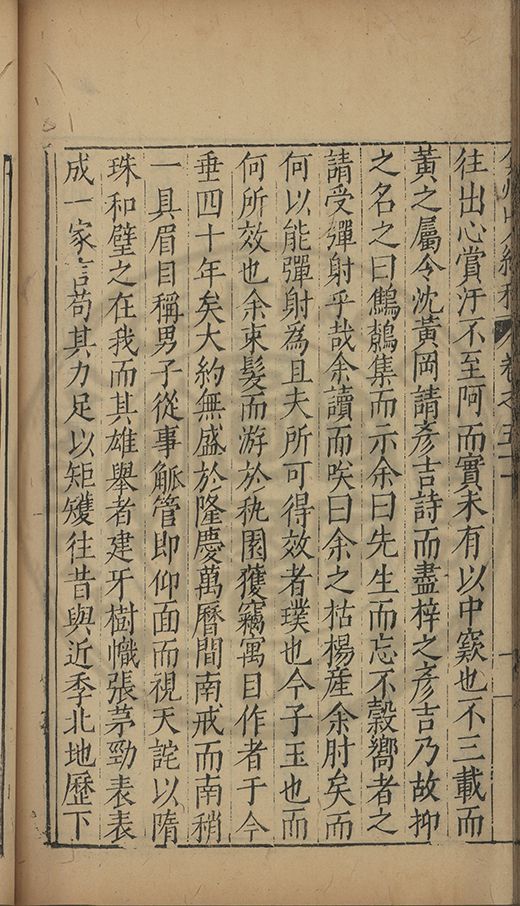 往出心賞汙不至阿而實未有以中窾也不三載而
黃之屬令沈黃岡請彥吉詩而盡梓之彥吉乃故抑
之名之曰鷦鷯集而示余曰先生而忘不穀嚮者之
請受彈射乎哉余讀而唉曰余之枯楊産余肘矣而
何以能彈射為且夫所可得效者璞也今子玉也而
何所效也余束髮而游於秇園獲竊寓目作者于今
垂四十年矣大約無盛於隆慶萬曆間南戒而南稍
一具眉目稱男子從事觚管即仰面而視天詫以隋
珠和璧之在我而其雄舉者建牙樹幟張茅勁表表
成一家言苟其力足以矩矱往昔與近季北地歷下